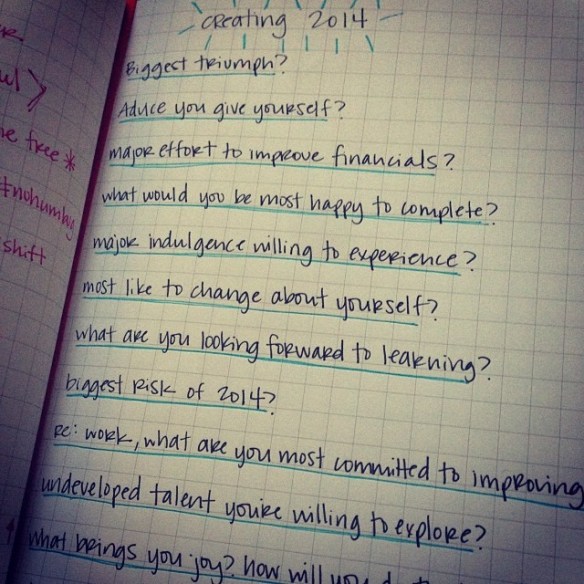 creating 2014
Biggest triumph?
Aduce you give yourself?
major effort to improve financials?
what would you be most happy to complete?
major indulgence willing to experience?
most like to change about yourself?
what are you looking forward to learning?
biggest risk of 2014?
re: work, what are you most committed to improving
undeveloped talent you're willing to explore?
what brings you joy? how will you
e free*
#nohumbug
shift